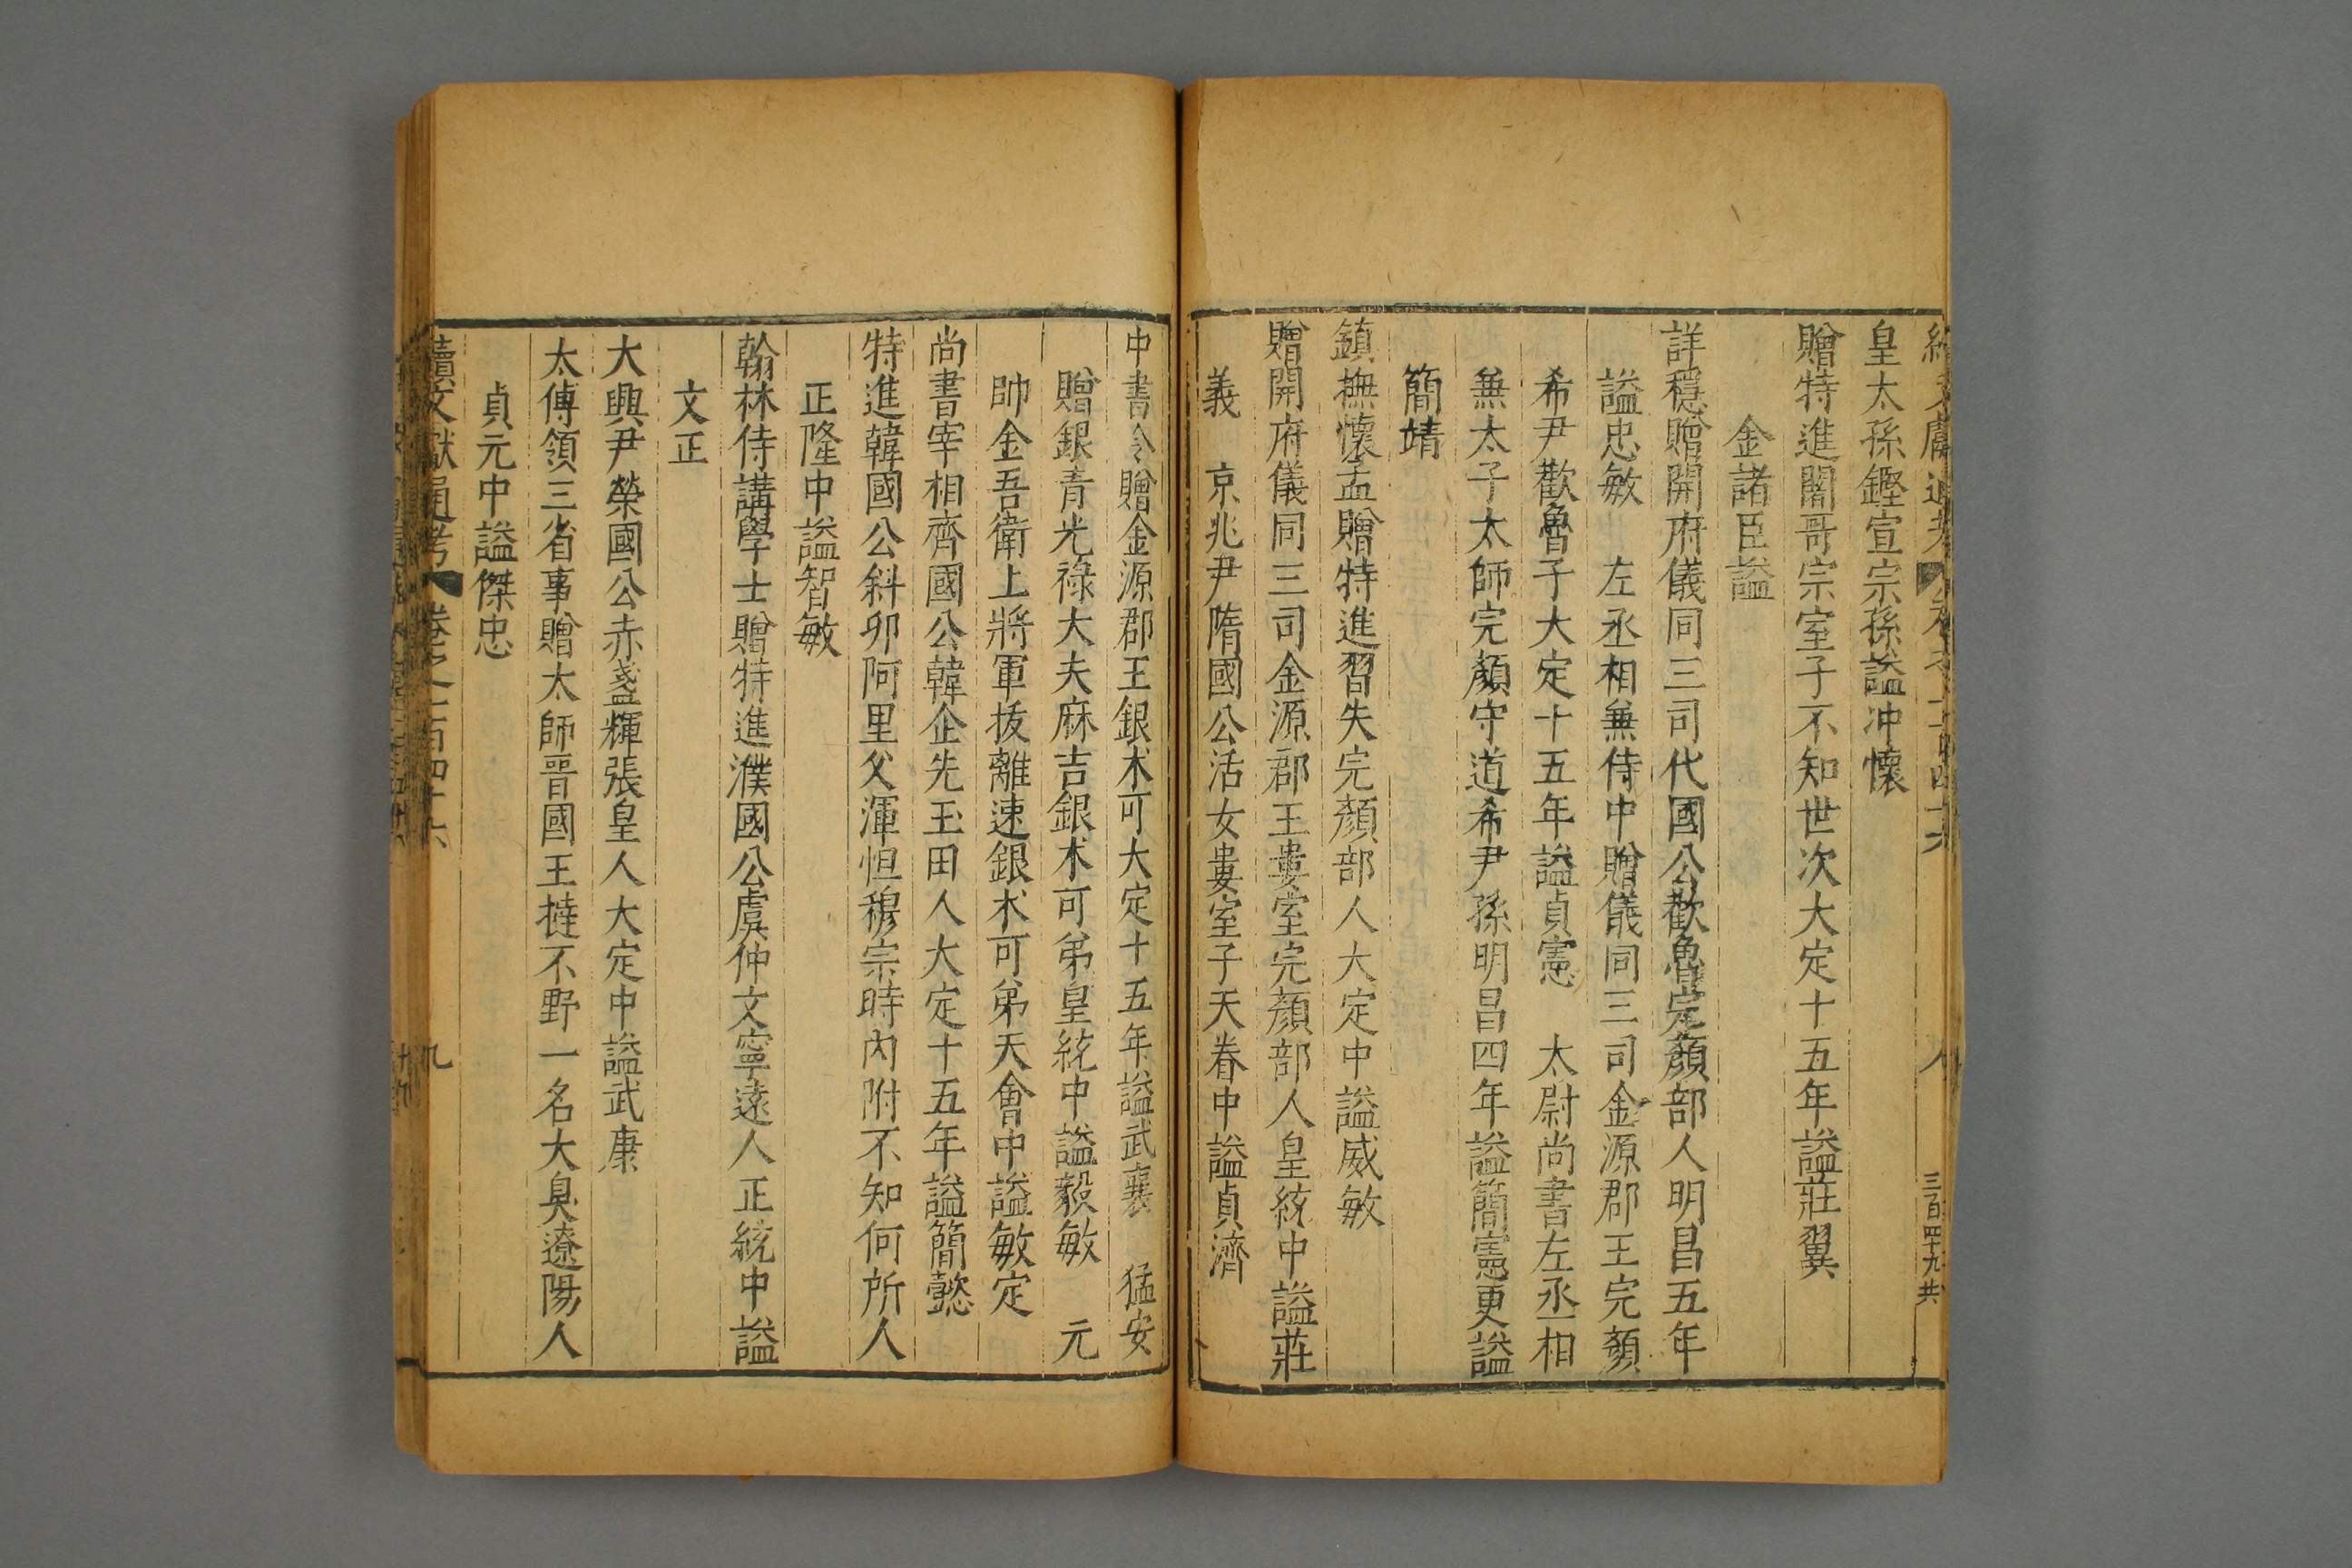 皇太孫鏗宣宗孫謚冲懷
贈特進闍哥宗室子不知世次大定十五年謚莊翼
金諸臣謚
詳穩贈開府儀同三司代國公歡魯完顏部人明昌五年
謚忠敏　左丞相兼侍中贈儀同三司金源郡王完顏
希尹歡魯子大定十五年謚貞憲　太尉尚書左丞相
兼太子太師完顏守道希尹孫明昌四年謚簡憲更謚
簡靖
鎮撫懷孟贈特進習失完顏部人大定中謚威敏
贈開府儀同三司金源郡王婁室完顏部人皇統中謚莊
義　京兆尹隋國公活女婁室子天眷中謚貞濟
中書令贈金源郡王銀术可大定十五年謚武襄　猛安
贈銀青光祿大夫麻吉銀术可弟皇統中謚毅敏　元
帥金吾衛上將軍拔離速銀术可弟天會中謚敏定
尚書宰相齊國公韓企先玉田人大定十五年謚簡懿
特進韓國公斜卯阿里父渾怛穆宗時内附不知何所人
正隆中謚智敏
翰林侍講學士贈特進濮國公虞仲文寧遠人正統中謚
文正
大興尹榮國公赤盞輝張皇人大定中謚武康
太傅領三省事贈太師晋國王撻不野一名大㚖遼陽人
貞元中謚傑忠
續文獻通考　卷之一百四十六　九